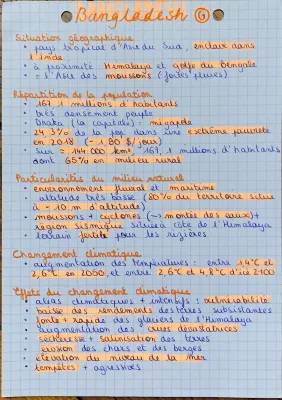 Bangladesh G
Situation géographique
• pays tropical d'Asie du Sud, enclavé dans
l'Inde
• à proximité Himalaya et golfe du Bengale
• = l'Asie des moussons (fortes pluies)
Répartition de la population
• 167,1 millions d'habitants
• très densément peuplé
• Dhaka (la capitale) : mégapole
• 24,3 % de la pop dans une extrême pauvreté
en 2018 (- 1,90 $/jour)
• Sur = 144 000 km², 167,1 millions d'habitants
dont 65% en milieu rural
Particularités du milieu naturel
• environnement fluvial et maritime
• altitude très basse (80% du territoire situé
à - 10 m d'altitude)
• moussons + cyclones (→ montée des eaux) +
région sismique située à côté de l'Himalaya
• terrain fertile pour les rizières
Changement climatique
• augmentation des températures : entre 1,4°C et
2,6°C en 2050 et entre 2,6°C et 4,8°C d'ici 2100
Effets du changement climatique
• aléas climatiques + intensifs : vulnérabilité
• baisse des rendements des terres subsistantes
• fonte + rapide des glaciers de l'Himalaya
• augmentation des crues dévastatrices
• sécheresse + salinisation des terres
• érosion des chars et des berges
• élévation du niveau de la mer
• tempêtes + agressives